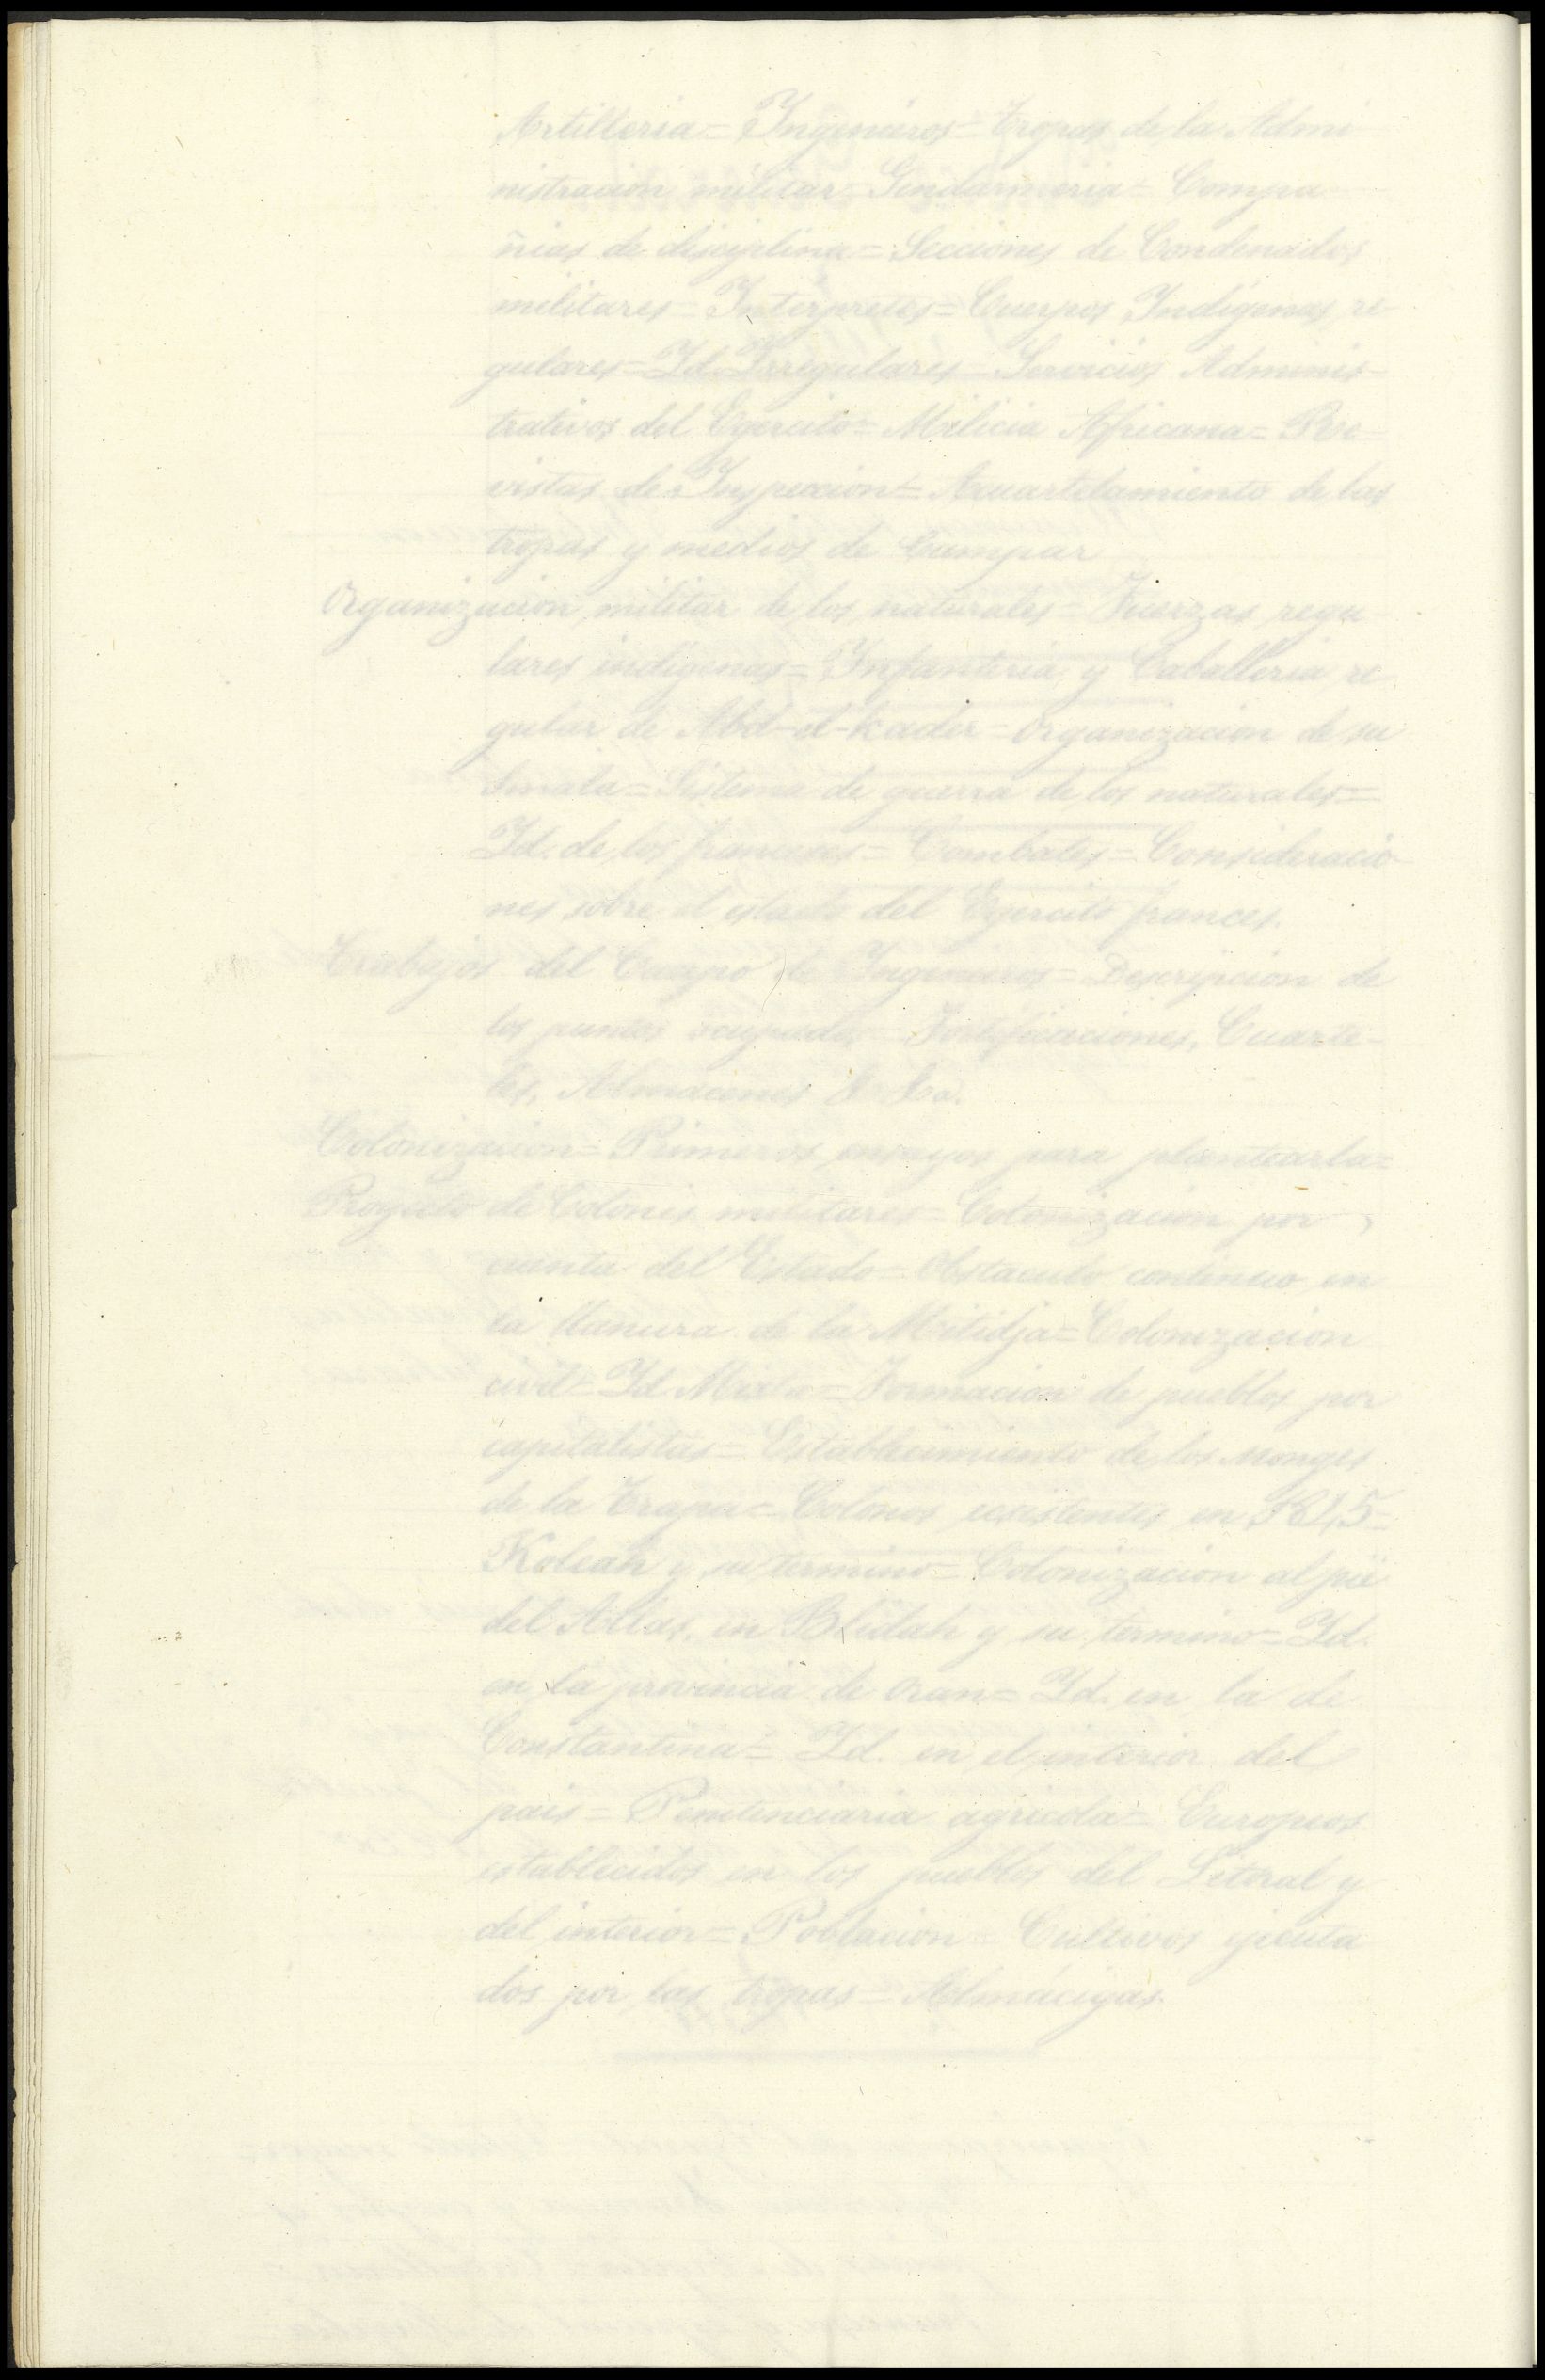 Artilleria = Ingenieros = Tropas de la Admi
nistracion militar = Gendarmeria = Compa
ñias de disciplina = Secciones de Condenados
militares = Interpretes = Cuerpos Indigenas re-
gulares = Id. Irregulares = Servicios Adminis-
trativos del Egercito = Milicia Africana = Re-
vistas de Inspeccion = Acuartelamiento de las
tropas y medios de Campar
Organizacion militar de los naturales = Fuerzas regu-
lares indigenas = Infanteria y Caballeria re
gular de Abd-el-Kader = Organizacion de su
Smala = Sistema de guerra de los naturales =
Id. de los franceses = Combates = Consideracio-
nes sobre el estado del Egercito frances.
Trabajos del Cuerpo de Ingenieros = Descripcion de
los puntos ocupados = Fortificaciones, Cuarte-
les, Almacenes &a. &a.
Colonizacion = Primeros ensayos para plantearla =
Proyecto de Colonias militares = Colonizacion por
cuenta del Estado = Obstaculo continuo en
la llanura de la Mitidja = Colonizacion
civil = Id. Mixta = Formacion de pueblos por
capitalistas = Establecimiento de los Monges
de la Trapa = Colonos ecsistentes en 1845 =
Koleah y su termino = Colonizacion al pie
del Atlas, en Blidah y su termino = Id.
en la provincia de Oran = Id. en la de
Constantina = Id. en el interior del
pais = Penitenciaria agricola = Europeos
establecidos en los pueblos del Litoral y
del interior = Poblacion = Cultivos egecuta
dos por las tropas = Almácigas.